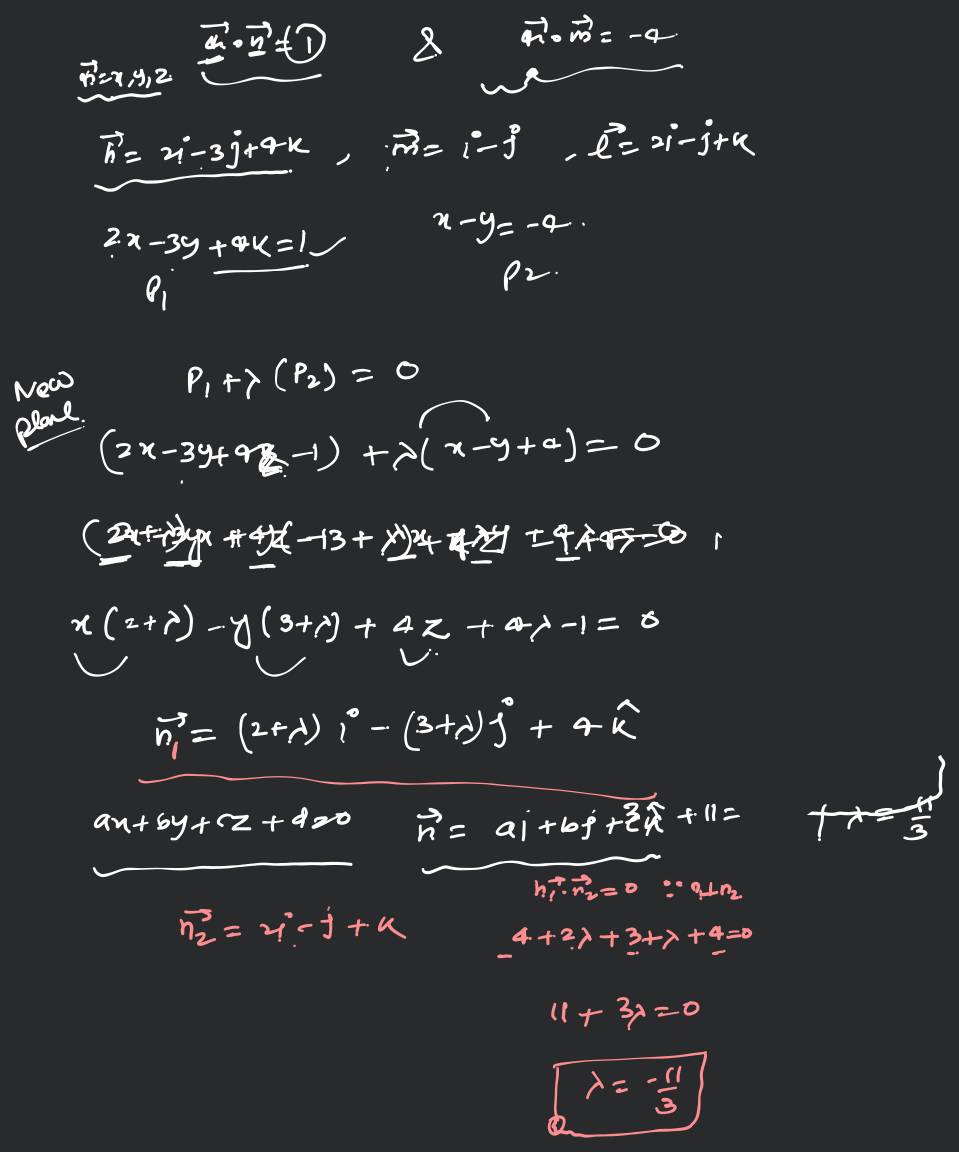 n⃗ = x, y, z
n⃗ · n⃗ = 1 & n⃗ · m⃗ = -4
n⃗ = 2i - 3j + 4k , m⃗ = i - j , l⃗ = 2i - j + k
2x - 3y + 4k = 1 x - y = -4 .
P₁ P2 .
New plane. P₁ + λ (P₂) = 0
(2x - 3y + 4z - 1) + λ(x - y + 4) = 0
x(2+λ) - y(3+λ) + 4z + 4λ - 1 = 0
n₁⃗ = (2+λ) i - (3+λ) j + 4 k̂
ax + by + cz + d = 0 n⃗ = ai + bj + k̂ + 11 = + λ = 11/3
n₁⃗ · n₂⃗ = 0 ∵
n₂⃗ = 2i - j + k
4 + 2λ + 3 + λ + 4 = 0
11 + 3λ = 0
λ = -11/3